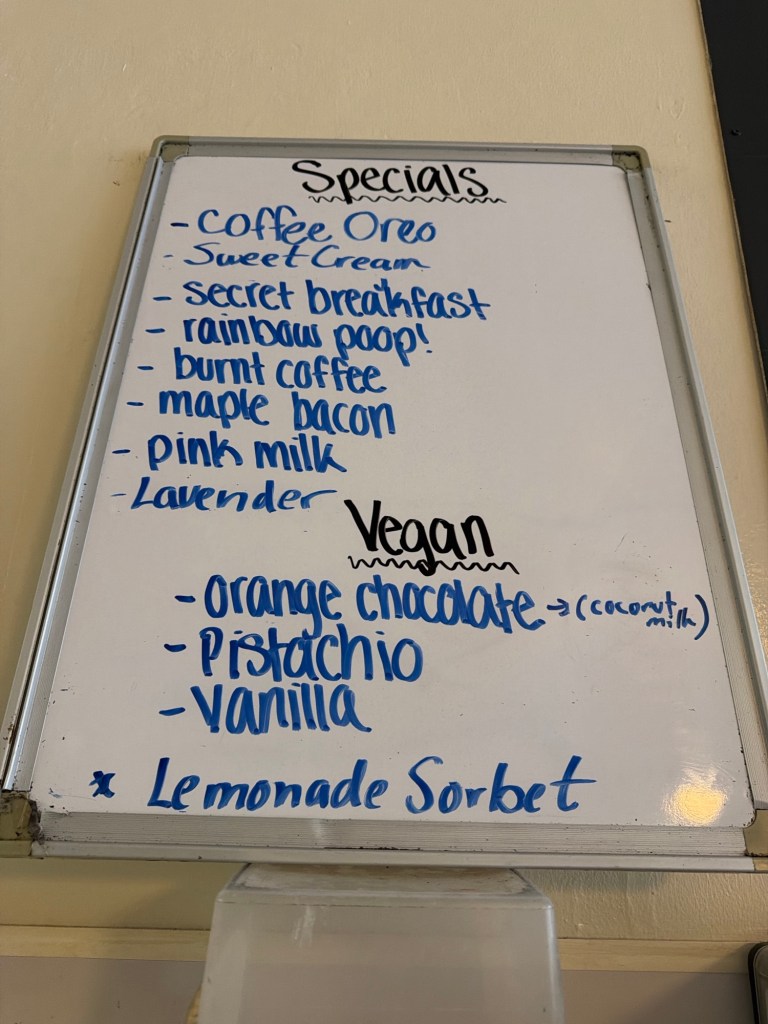 Specials
- Coffee Oreo
- Sweet Cream
- secret breakfast
- rainbow poop!
- burnt coffee
- maple bacon
- pink milk
- Lavender
Vegan
- orange chocolate → (coconut milk)
- Pistachio
- Vanilla
* Lemonade Sorbet